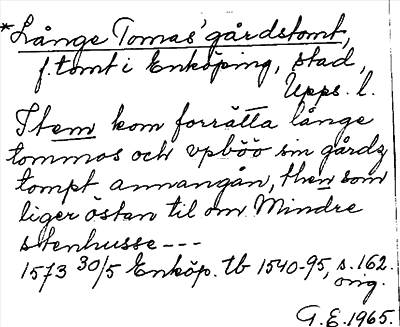 *Långe Tomas' gårdstomt,
f. tomt i Enköping, stad,
Upps. l.
Item kom forrätta långe
tommos och vpböö sin gårdz
tompt annangån, then som
liger östan til om Mindre
stenhusse ---
1573 30/5 Enköp. tb 1540-95, s. 162.
orig.
G. E. 1965.